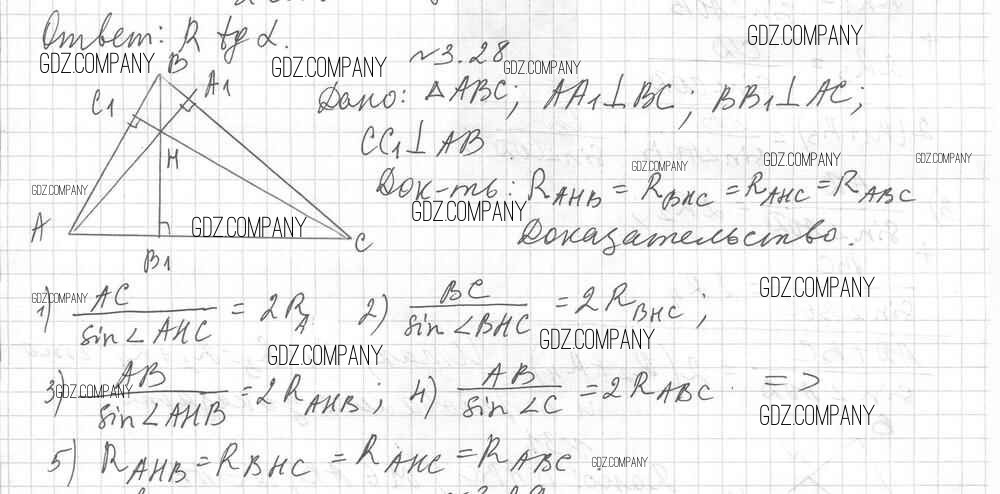 Ответ: R tg α.
GDZ.COMPANY
GDZ.COMPANY
№3.28
GDZ.COMPANY
GDZ.COMPANY
B
C1
A1
H
A
B1
C
Дано: △ABC; AA1⊥BC; BB1⊥AC;
CC1⊥AB
GDZ.COMPANY
GDZ.COMPANY
GDZ.COMPANY
GDZ.COMPANY
Док-ть: R AHB = R BHC = R AHC = R ABC
GDZ.COMPANY
GDZ.COMPANY
Доказательство.
GDZ.COMPANY
GDZ.COMPANY
1) AC / sin∠AHC = 2R A 2) BC / sin∠BHC = 2R BHC;
GDZ.COMPANY
GDZ.COMPANY
GDZ.COMPANY
3) AB / sin∠AHB = 2R AHB; 4) AB / sin∠C = 2R ABC. =>
GDZ.COMPANY
5) R AHB = R BHC = R AHC = R ABC.
GDZ.COMPANY